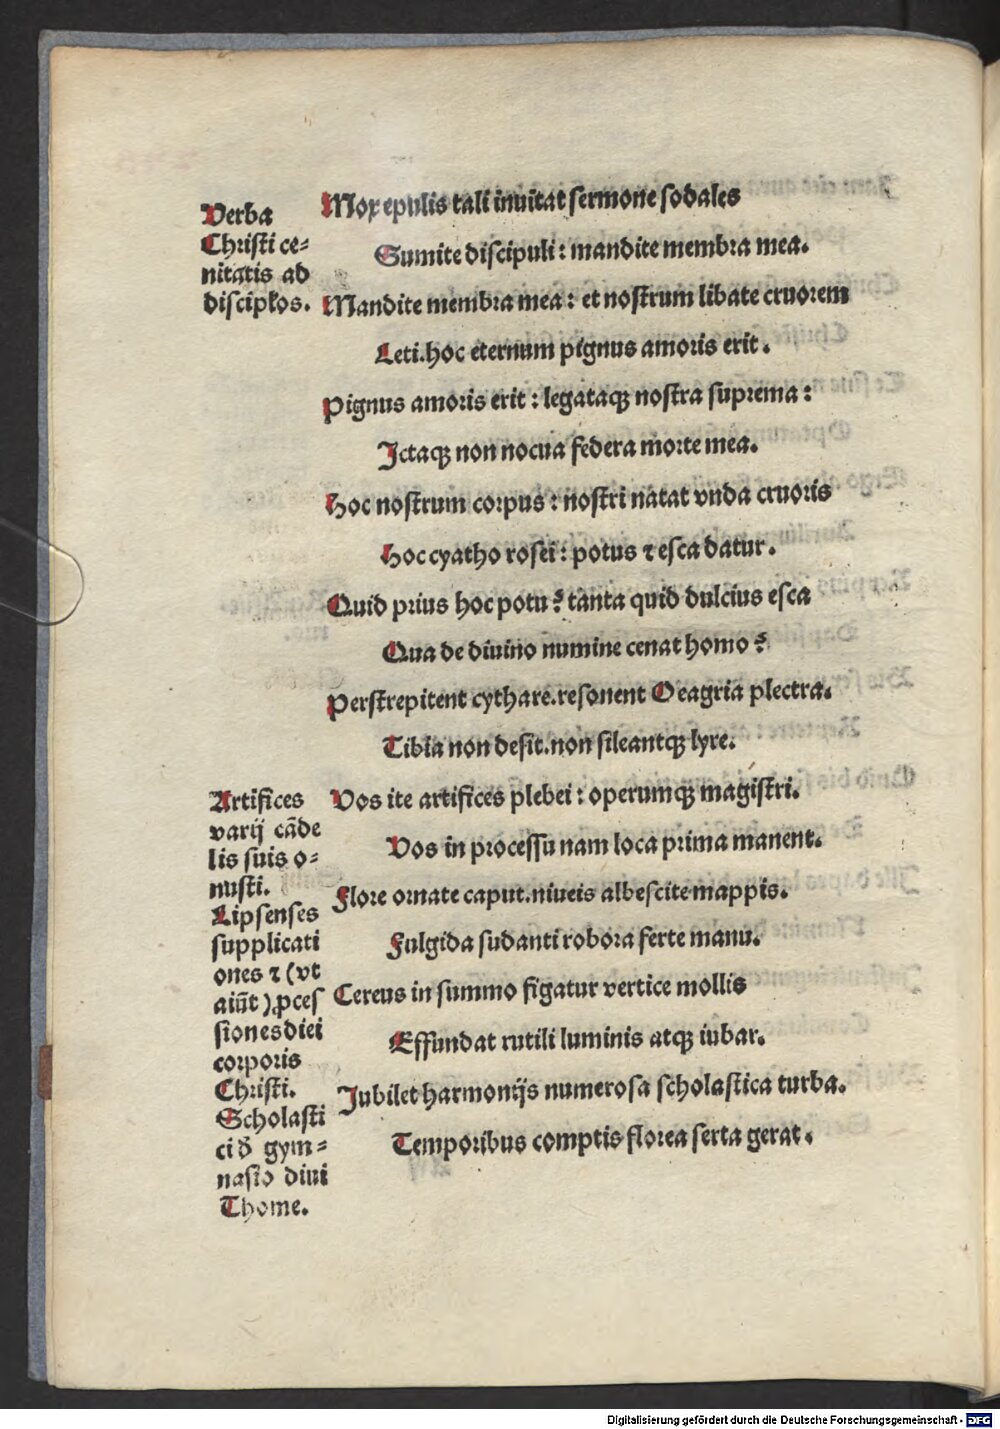 Verba
Christi ce⸗
nitatis ad
discipłos.
Mox epulis tali inuitat sermone sodales
Sumite discipuli: mandite membra mea.
Mandite membra mea: et nostrum libate cruorem
Leti.hoc eternum pignus amoris erit.
Pignus amoris erit: legataqꝫ nostra suprema:
Ictaqꝫ non nocua federa morte mea.
Hoc nostrum corpus: nostri natat vnda cruoris
Hoc cyatho rosei: potus ⁊ esca datur.
Quid prius hoc potu? tanta quid dulcius esca
Qua de diuino numine cenat homo?
Perstrepitent cythare.resonent Oeagria plectra.
Tibia non desit.non sileantqꝫ lyre.
Artifices
varij cāde
lis suis o⸗
nusti.
Lipsenses
supplicati
ones ⁊ (vt
aiūt) ꝓces
siones diei
corporis
Christi.
Scholasti
ci đ gym⸗
nasio diui
Thome.
Vos ite artifices plebei: operumqꝫ magistri.
Vos in processu nam loca prima manent.
Flore ornate caput.niueis albescite mappis.
Fulgida sudanti robora ferte manu.
Cereus in summo figatur vertice mollis
Effundat rutili luminis atqꝫ iubar.
Jubilet harmonijs numerosa scholastica turba.
Temporibus comptis florea serta gerat.
Digitalisierung gefördert durch die Deutsche Forschungsgemeinschaft - DFG